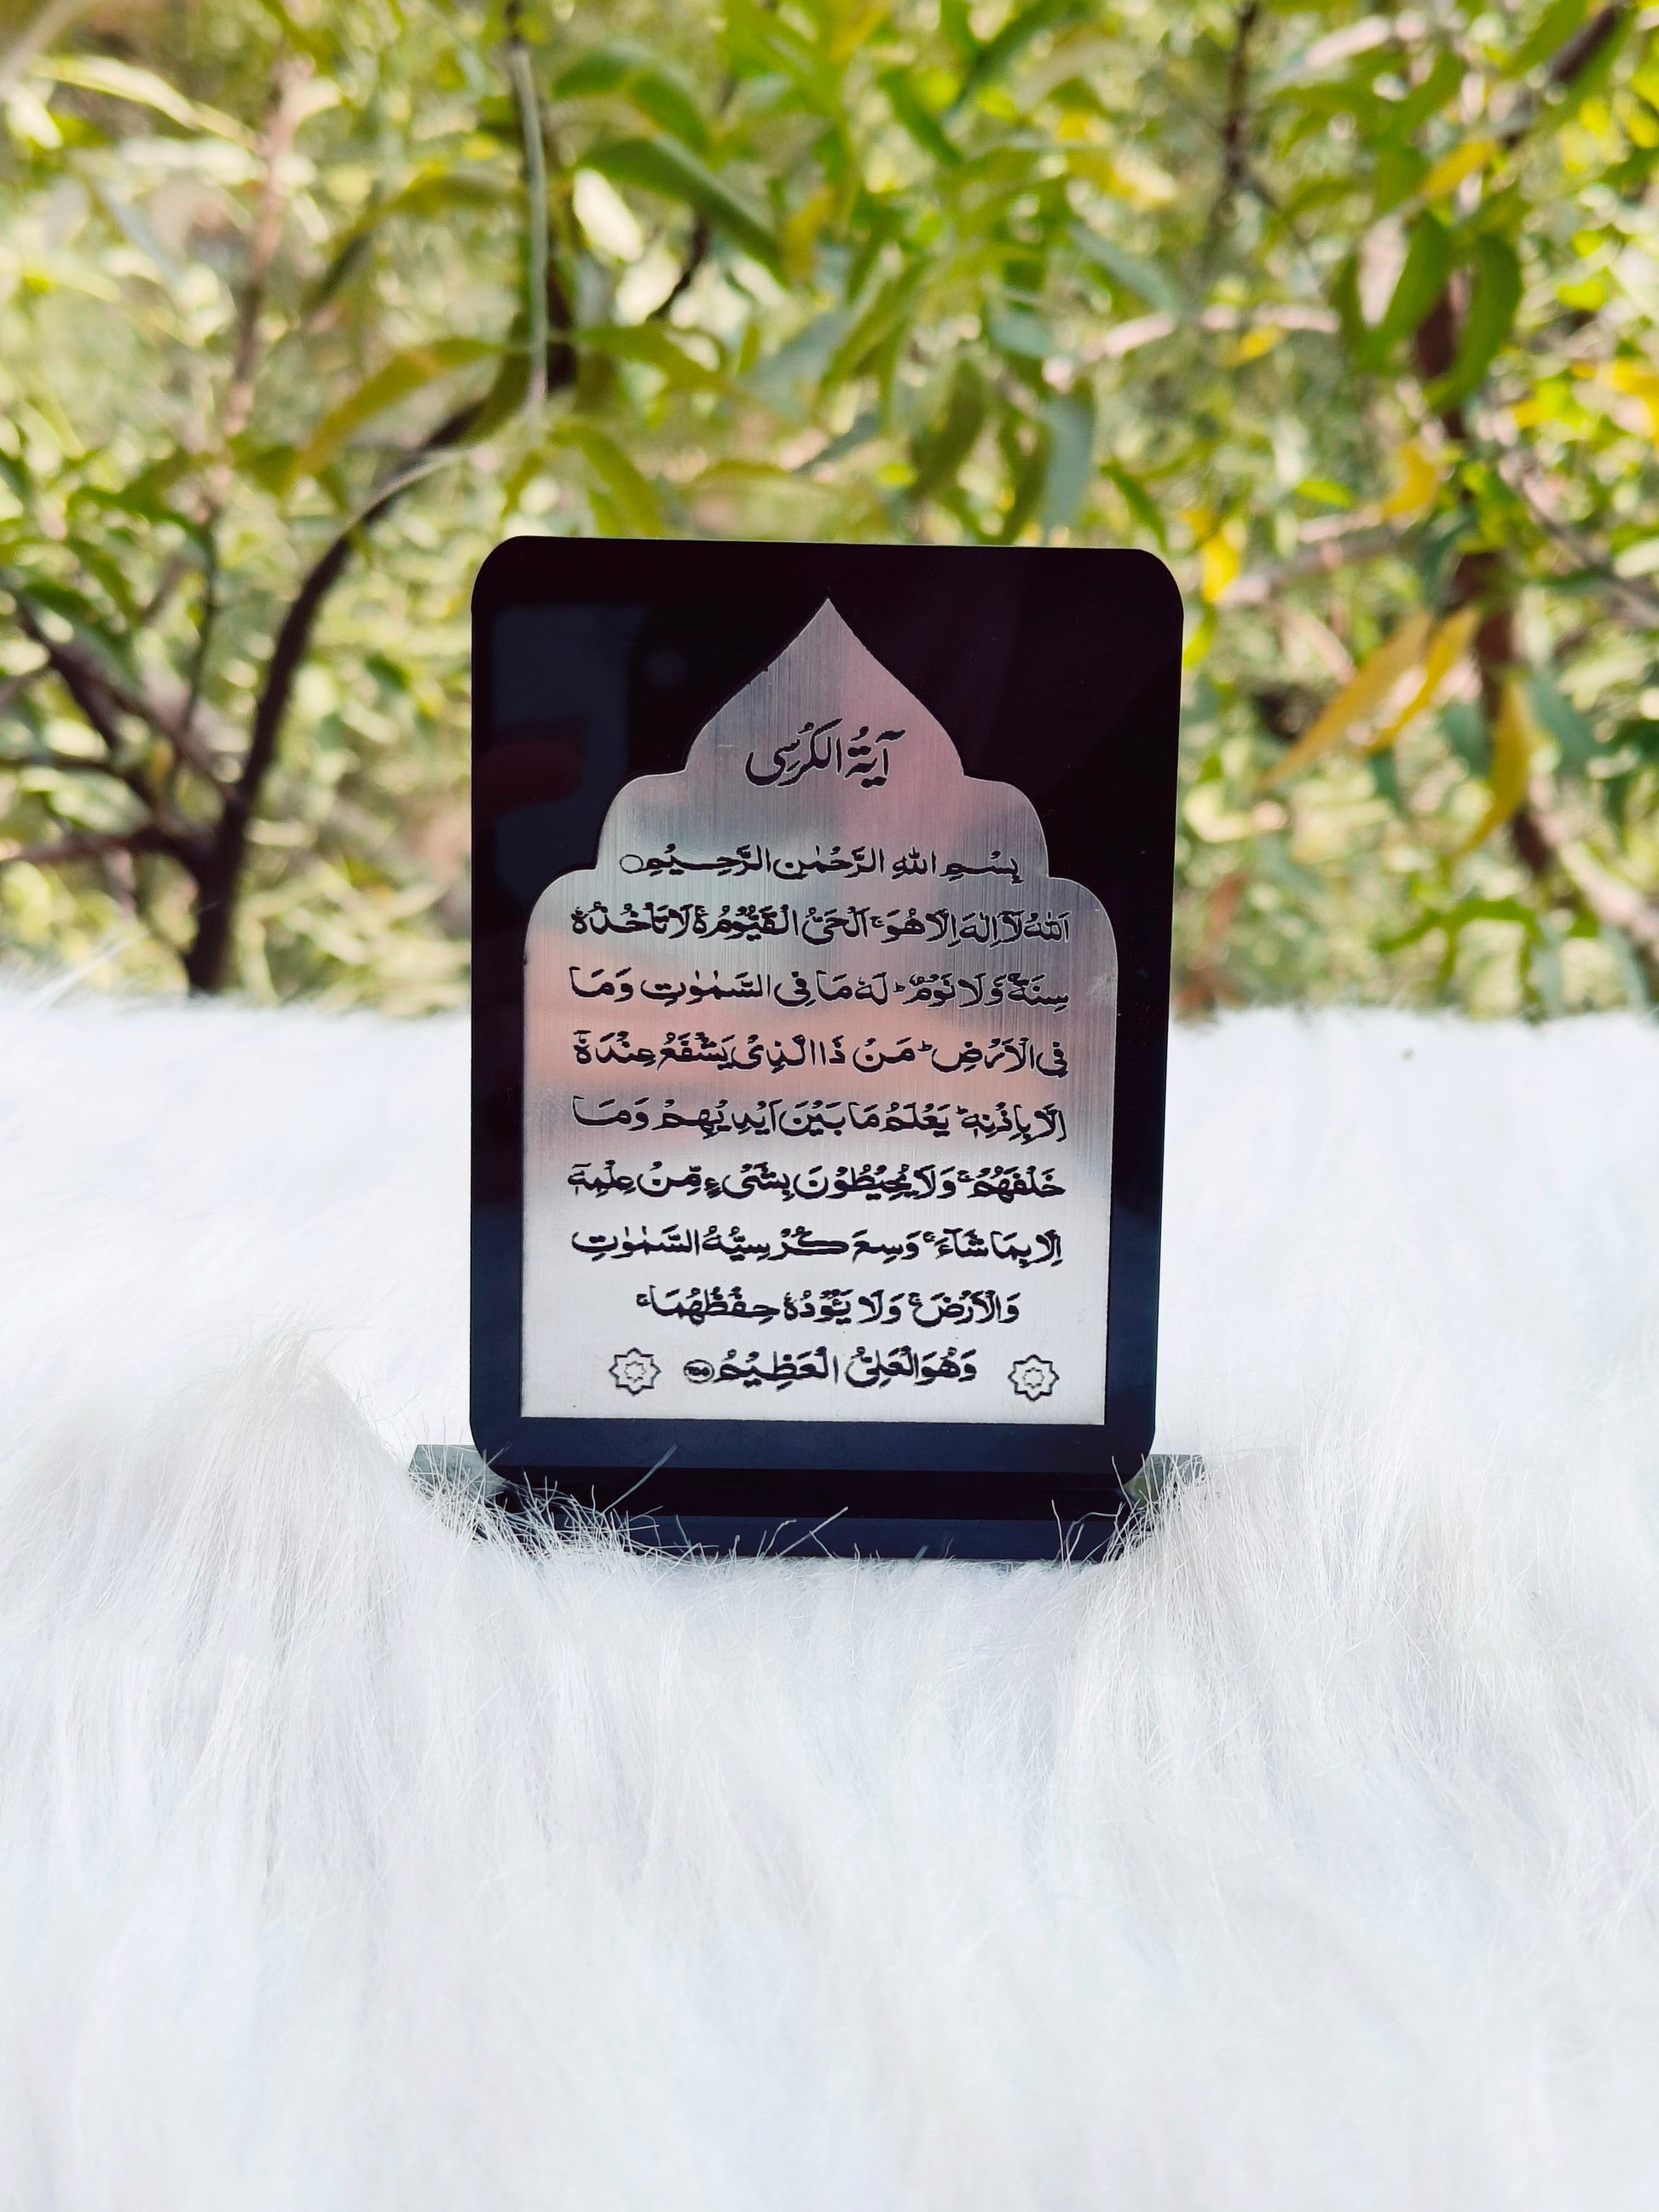 آيَةُ الكُرْسِى
بِسْمِ اللهِ الرَّحْمٰنِ الرَّحِيْمِ ○
اَللّٰهُ لَآ اِلٰهَ اِلَّا هُوَ ۚ اَلْحَىُّ الْقَيُّوْمُ ۚ لَا تَاْخُذُهٗ
سِنَةٌ وَّلَا نَوْمٌ ؕ لَهٗ مَا فِى السَّمٰوٰتِ وَمَا
فِى الْاَرْضِ ؕ مَنْ ذَا الَّذِىْ يَشْفَعُ عِنْدَهٗٓ
اِلَّا بِاِذْنِهٖ ؕ يَعْلَمُ مَا بَيْنَ اَيْدِيْهِمْ وَمَا
خَلْفَهُمْ ۚ وَلَا يُحِيْطُوْنَ بِشَىْءٍ مِّنْ عِلْمِهٖٓ
اِلَّا بِمَا شَآءَ ۚ وَسِعَ كُرْسِيُّهُ السَّمٰوٰتِ
وَالْاَرْضَ ۚ وَلَا يَئُوْدُهٗ حِفْظُهُمَا ۚ
وَهُوَ الْعَلِىُّ الْعَظِيْمُ ﴿۲۵۵﴾